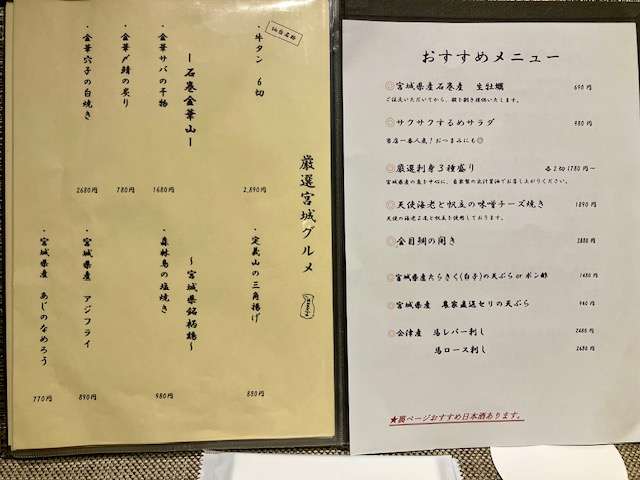 厳選宮城グルメ
仙台名物
・牛タン 6切
2,890円
ー石巻金華山ー
・金華サバの干物
1680円
・金華〆鯖の炙り
780円
・金華穴子の白焼き
2680円
・定義山の三角揚げ
880円
~宮城県銘柄鶏~
・森林鳥の塩焼き
980円
・宮城県産 アジフライ
890円
・宮城県産 あじのなめろう
770円
おすすめメニュー
◎宮城県産石巻産 生牡蠣 690円
ご注文いただいてから、殻を剥き提供いたします。
◎サクサクするめサラダ 980円
当店一番人気!おつまみにも◎
◎厳選刺身3種盛り 各2切1780円〜
宮城県産の魚を中心に、自家製の出汁醤油でお召し上がりください。
◎天使海老と帆立の味噌チーズ焼き 1890円
天使の海老と帆立を使用しております。
◎金目鯛の開き 2880円
◎宮城県産たらきく(白子)の天ぷらorポン酢 1480円
◎宮城県産 農家直送セリの天ぷら 980円
◎会津産 馬レバー刺し 2680円
馬ロース刺し 2680円
★裏ページおすすめ日本酒あります。